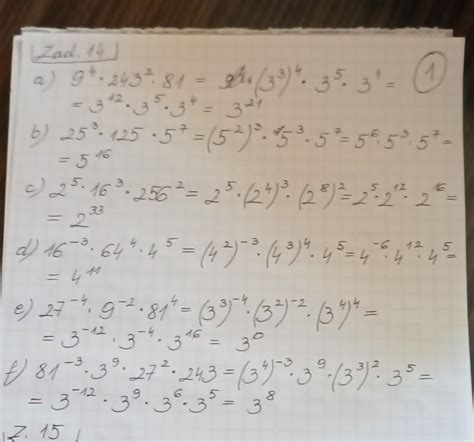 Zad. 14
1
a) 9⁴ · 243² · 81 = (3³)⁴ · 3⁵ · 3⁴ =
= 3¹² · 3⁵ · 3⁴ = 3²¹
b) 25³ · 125 · 5⁷ = (5²)³ · 5³ · 5⁷ = 5⁶ · 5³ · 5⁷ =
= 5¹⁶
c) 2⁵ · 16³ · 256² = 2⁵ · (2⁴)³ · (2⁸)² = 2⁵ · 2¹² · 2¹⁶ =
= 2³³
d) 16⁻³ · 64⁴ · 4⁵ = (4²)⁻³ · (4³)⁴ · 4⁵ = 4⁻⁶ · 4¹² · 4⁵ =
= 4¹¹
e) 27⁻⁴ · 9⁻² · 81⁴ = (3³)⁻⁴ · (3²)⁻² · (3⁴)⁴ =
= 3⁻¹² · 3⁻⁴ · 3¹⁶ = 3⁰
f) 81⁻³ · 3⁹ · 27² · 243 = (3⁴)⁻³ · 3⁹ · (3³)² · 3⁵ =
= 3⁻¹² · 3⁹ · 3⁶ · 3⁵ = 3⁸
Z. 15